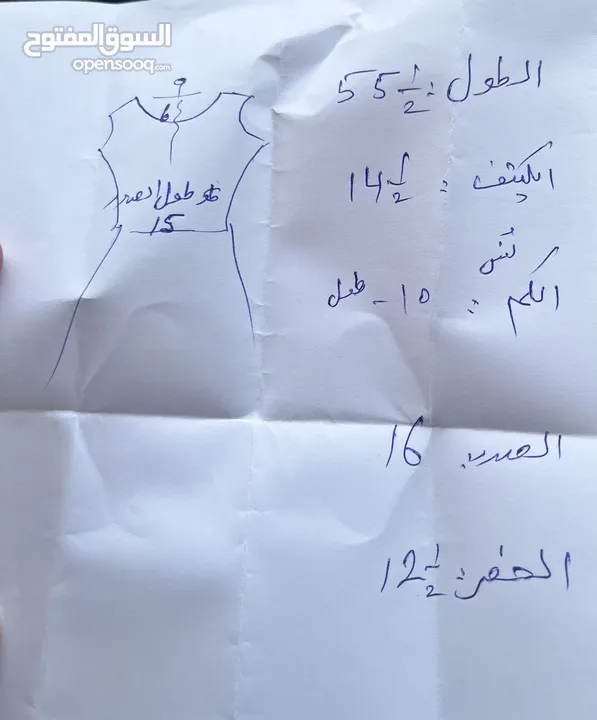 السوق المفتوح
opensooq.com
الطول: 55 1/2
الكتف: 14 1/2
الكم: 10 - طول
الصدر 16
الحفر: 12 1/2
9
6
طول الصدر
15